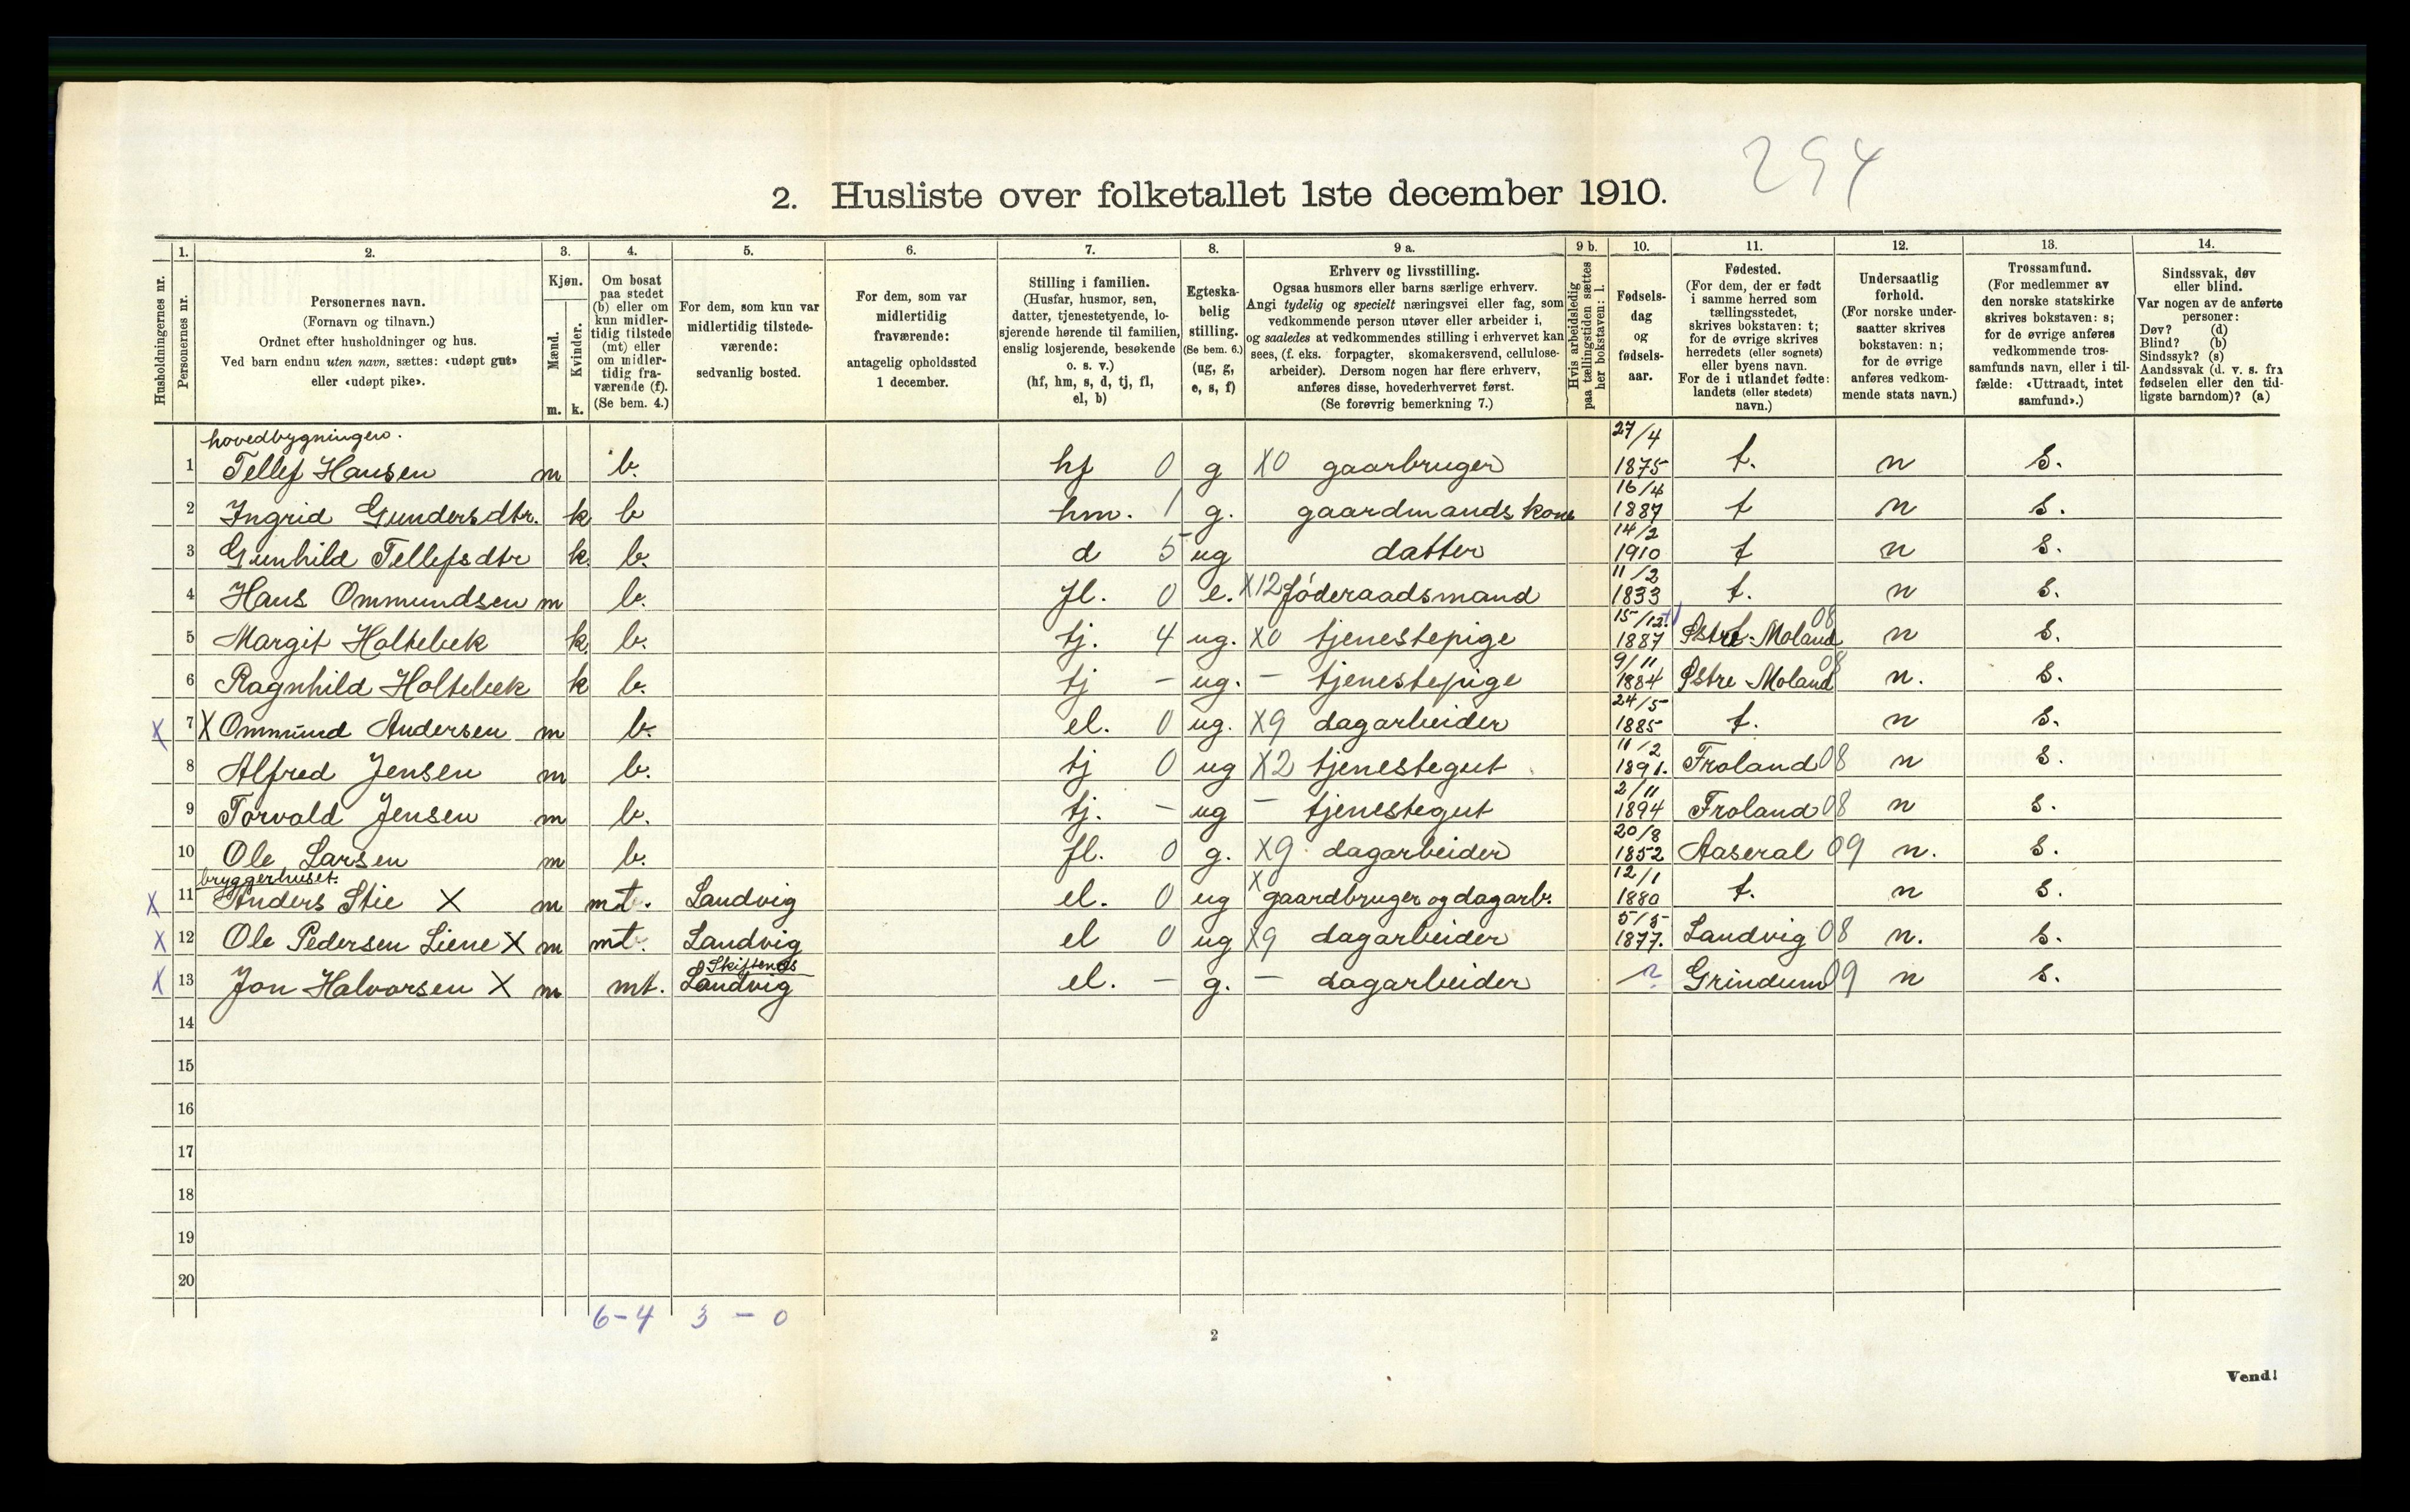 294
2. Husliste over folketallet 1ste december 1910.
Husholdningernes nr.
1. Personernes nr.
2. Personernes navn.
(Fornavn og tilnavn.)
Ordnet efter husholdninger og hus.
Ved barn endnu uten navn, sættes: «udøpt gut»
eller «udøpt pike».
3. Kjøn.
Mænd. m.
Kvinder. k.
4. Om bosat
paa stedet
(b) eller om
kun midler-
tidig tilstede
(mt) eller
om midler-
tidig fra-
værende (f).
(Se bem. 4.)
5. For dem, som kun var
midlertidig tilstede-
værende:
sedvanlig bosted.
6. For dem, som var
midlertidig
fraværende:
antagelig opholdssted
1 december.
7. Stilling i familien.
(Husfar, husmor, søn,
datter, tjenestetyende, lo-
sjerende hørende til familien,
enslig losjerende, besøkende
o. s. v.)
(hf, hm, s, d, tj, fl,
el, b)
8. Egteska-
belig
stilling.
(Se bem. 6.)
(ug, g,
e, s, f)
9 a. Erhverv og livsstilling.
Ogsaa husmors eller barns særlige erhverv.
Angi tydelig og specielt næringsvei eller fag, som
vedkommende person utøver eller arbeider i,
og saaledes at vedkommendes stilling i erhvervet kan
sees, (f. eks. forpagter, skomakersvend, cellulose-
arbeider). Dersom nogen har flere erhverv,
anføres disse, hovederhvervet først.
(Se forøvrig bemerkning 7.)
9 b. Hvis arbeidsledig
paa tællingstiden sættes
her bokstaven: l.
10. Fødsels-
dag
og
fødsels-
aar.
11. Fødested.
(For dem, der er født
i samme herred som
tællingsstedet,
skrives bokstaven: t;
for de øvrige skrives
herredets (eller sognets)
eller byens navn.
For de i utlandet fødte:
landets (eller stedets)
navn.)
12. Undersaatlig
forhold.
(For norske under-
saatter skrives
bokstaven: n;
for de øvrige
anføres vedkom-
mende stats navn.)
13. Trossamfund.
(For medlemmer av
den norske statskirke
skrives bokstaven: s;
for de øvrige anføres
vedkommende tros-
samfunds navn, eller i til-
fælde: «Uttraadt, intet
samfund».)
14. Sindssvak, døv
eller blind.
Var nogen av de anførte
personer:
Døv? (d)
Blind? (b)
Sindssyk? (s)
Aandssvak (d. v. s. fra
fødselen eller den tid-
ligste barndom)? (a)
hovedbygningen.
1 Tellef Hansen m b. hf 0 g X0 gaarbruger 27/4 1875 t. n s.
2 Ingrid Gundersdtr. k b hm. 1 g. gaardmandskone 16/4 1887 t n s.
3 Gunhild Tellefsdtr k. b. d 5 ug datter 14/2 1910 t n s.
4 Hans Ommundsen m b. fl. 0 e. X12 föderaadsmand 11/2 1833 t. n s.
5 Margit Holtebek k. b. tj. 4 ug. X0 tjenestepige 15/12 1887 Østre Moland 08 n s.
6 Ragnhild Holtebek k b. tj - ug. - tjenestepige 9/11 1884 Østre Moland 08 n. s.
X 7 X Ommund Andersen m b. el. 0 ug. X9 dagarbeider 24/5 1885 t. n s.
8 Alfred Jensen m b. tj 0 ug X2 tjenestegut 11/2 1891. Froland 08 n s.
9 Torvald Jensen m b. tj. - ug - tjenestegut 2/11 1894 Froland 08 n s.
10 Ole Larsen m b. fl. 0 g. X9 dagarbeider 20/8 1852 Aaseral 09 n. s.
bryggerhuset.
X 11 Anders Stie X m mt. Landvig el. 0 ug X gaardbruger og dagarb. 12/1 1880 t. n s.
X 12 Ole Pedersen Liene X m mt. Landvig el 0 ug X9 dagarbeider 5/5 1877. Landvig 08 n. s.
Skiftenes
X 13 Jon Halvorsen X m mt. Landvig el. - g. - dagarbeider ? Grindum 09 n s.
14
15
16
17
18
19
20
6-4 3 - 0
2
Vend!